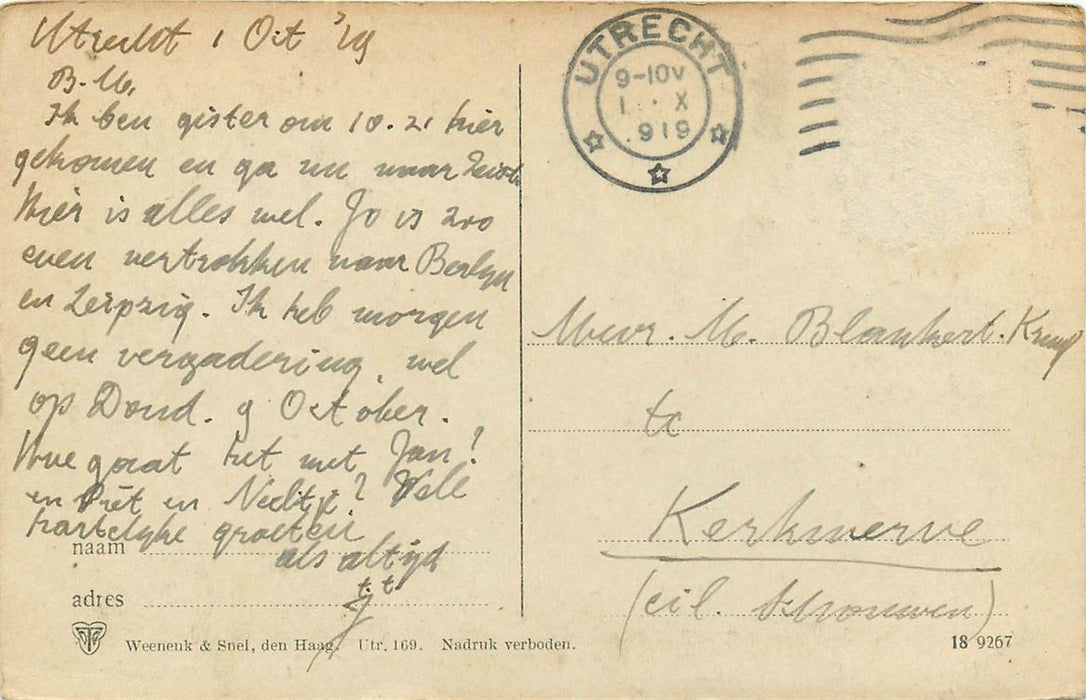 Utrecht 1 Oct '19
B. M.
Ik ben gister om 10.21 hier
gekomen en ga nu naar Zeist
Hier is alles wel. Jo is zoo
even vertrokken naar Berlyn
en Leipzig. Ik heb morgen
geen vergadering, wel
op Dond. 9 October.
Hoe gaat het met Jan?
en Piet en Neeltje? Vele
hartelyke groeten
als altijd
t.t.
J
naam
adres
Weenenk & Snel, den Haag. Utr. 169. Nadruk verboden.
UTRECHT
9-10V
1 X
919
Mevr. M. Blankert-
te
Kerkwerve
(eil. Schouwen)
18 9267